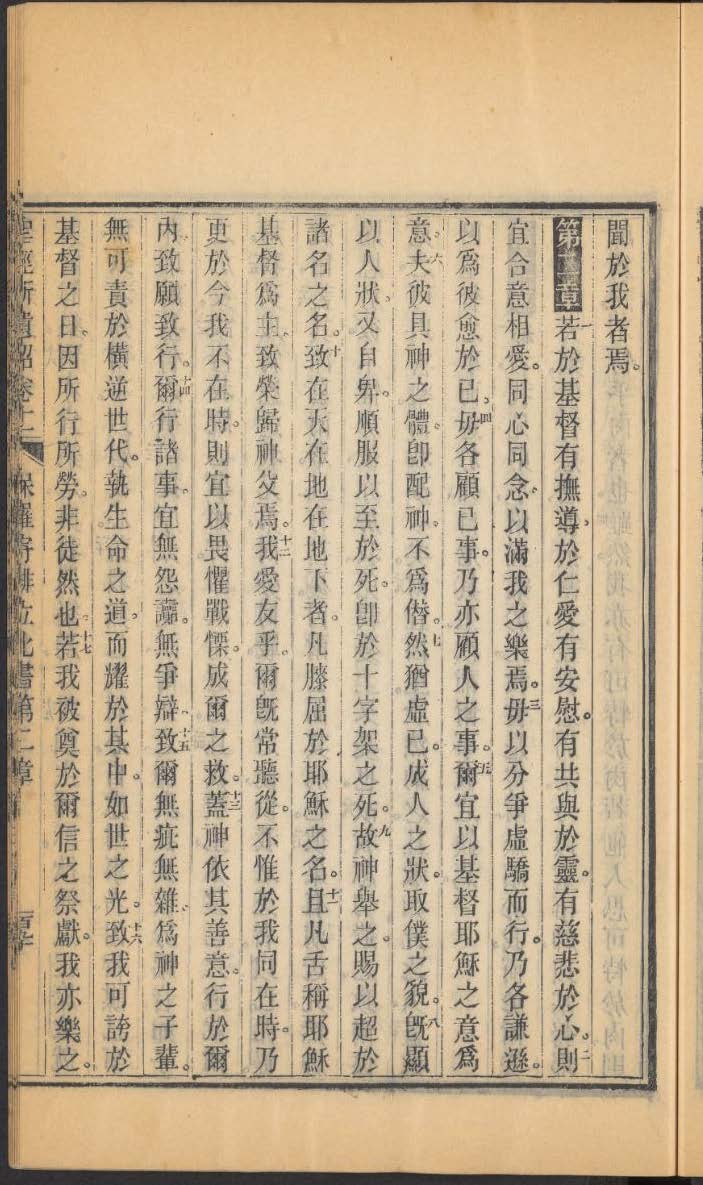 聞於我者焉。
第二章一若於基督有撫導、於仁愛有安慰。有共與於靈。有慈悲於心。二則
宜合意相愛。同心同念、以滿我之樂焉。三毋以分爭虛驕而行。乃各謙遜。
以爲彼愈於己。四毋各顧己事。乃亦顧人之事。五爾宜以基督耶穌之意爲
意。六夫彼具神之體。卽配神。不爲僭。七然猶虛己。成人之狀。取僕之貌。八旣顯
以人狀、又自卑。順服以至於死。卽於十字架之死。九故神舉之。賜以超於
諸名之名。十致在天在地在地下者。凡膝屈於耶穌之名。十一且凡舌稱耶穌
基督爲主、致榮歸神父焉。十二我愛友乎。爾旣常聽從。不惟於我同在時。乃
更於今我不在時。則宜以畏懼戰慄。成爾之救。十三蓋神依其善意。行於爾
內致願致行。十四爾行諸事。宜無怨讟。無爭辯、十五致爾無疵無雜、爲神之子輩。
無可責於橫逆世代。執生命之道、而耀於其中。如世之光。十六致我可誇於
基督之日。因所行所勞。非徒然也。十七若我被奠於爾信之祭獻。我亦樂之。
保羅寄腓立比書第二章